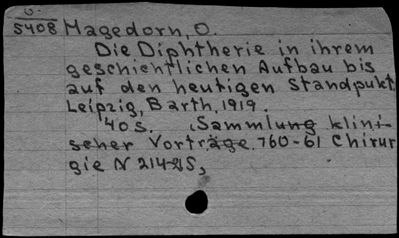 5408 Magedorn, O.
Die Diphtherie in ihrem
geschichtlichen Aufbau bis
auf den heutigen Standpukt
Leipzig, Barth, 1919.
40 S. (Sammlung klini-
scher Vorträge. 760-61 Chirur
gie N 214-25,